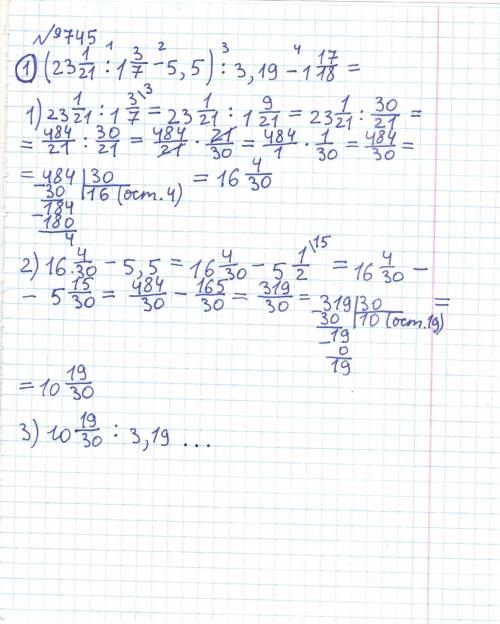 №745
① (23 1/21 :¹ 1 3/7 -² 5,5) :³ 3,19 -⁴ 1 17/18 =
1) 23 1/21 : 1 3/7 \3 = 23 1/21 : 1 9/21 = 23 1/21 : 30/21 =
= 484/21 : 30/21 = 484/21 · 21/30 = 484/1 · 1/30 = 484/30 =
= 484 | 30 = 16 4/30
- 30 | 16 (ост. 4)
184
- 180
4
2) 16 4/30 - 5,5 = 16 4/30 - 5 1/2 \15 = 16 4/30 -
- 5 15/30 = 484/30 - 165/30 = 319/30 = 319 | 30 =
- 30 | 10 (ост. 19)
- 19
0
19
= 10 19/30
3) 10 19/30 : 3,19 ...